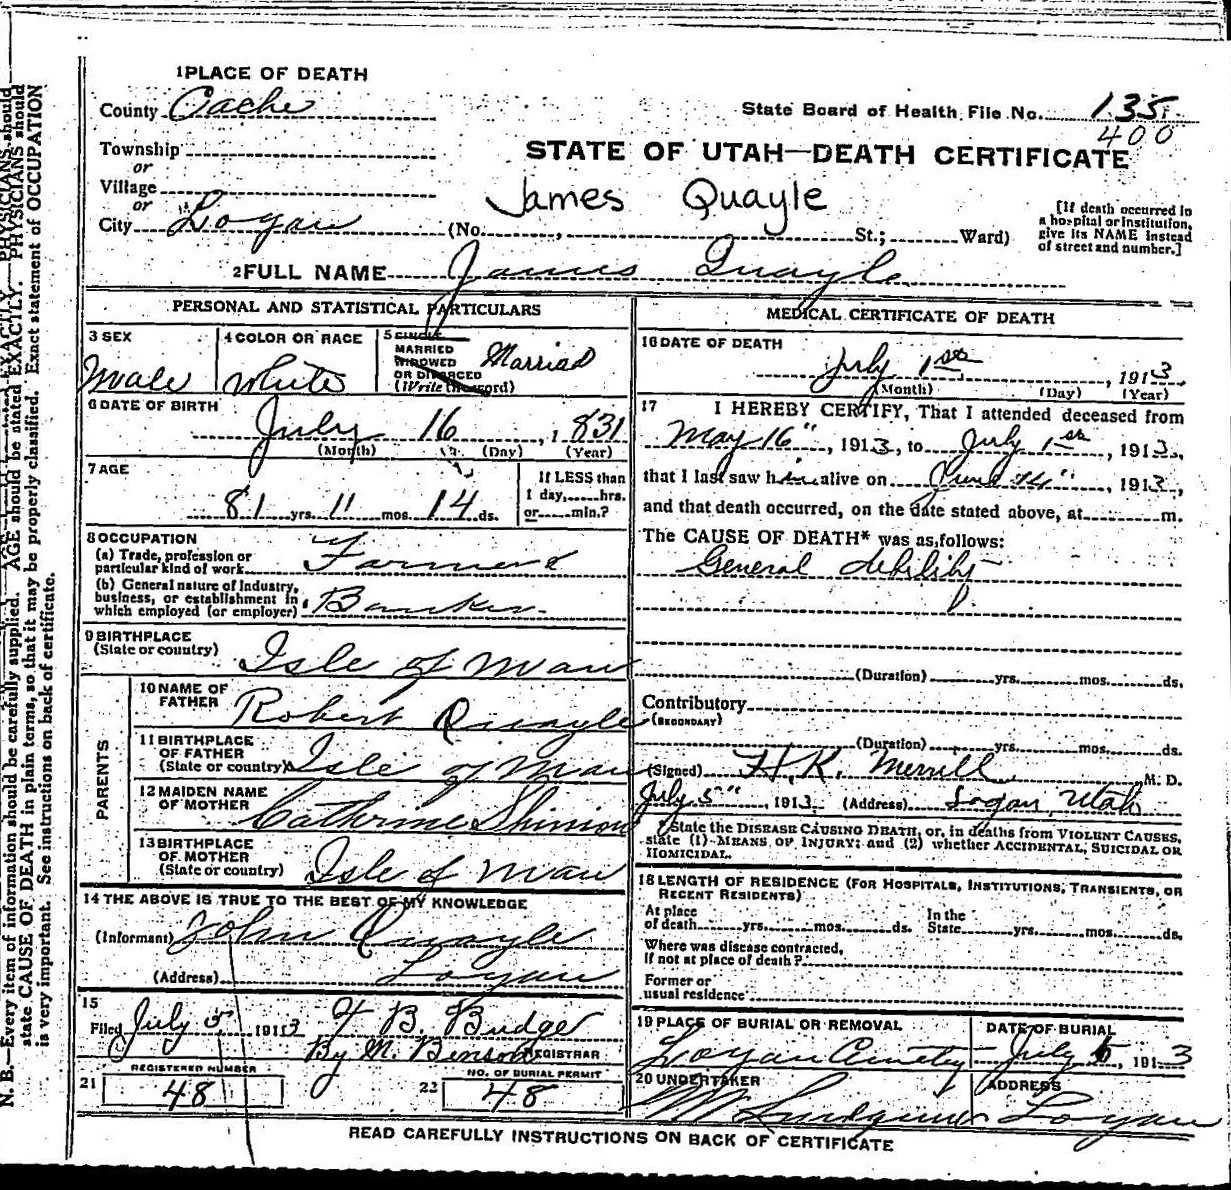 1 PLACE OF DEATH
County Cache
State Board of Health File No. 135
400
Township
or
Village
or
City Logan
STATE OF UTAH—DEATH CERTIFICATE
James Quayle
(No. , St.; Ward)
[If death occurred in
a hospital or institution,
give its NAME instead
of street and number.]
2 FULL NAME James Quayle
PERSONAL AND STATISTICAL PARTICULARS
3 SEX
Male
4 COLOR OR RACE
White
5 SINGLE
MARRIED
WIDOWED
OR DIVORCED
(Write the word)
Married
6 DATE OF BIRTH
July 16, 1831
(Month) (Day) (Year)
7 AGE
81 yrs. 11 mos. 14 ds.
If LESS than
1 day, hrs.
or min.?
8 OCCUPATION
(a) Trade, profession or
particular kind of work Farmer &
(b) General nature of Industry,
business, or establishment in
which employed (or employer) Banker
9 BIRTHPLACE
(State or country) Isle of Man
PARENTS
10 NAME OF
FATHER Robert Quayle
11 BIRTHPLACE
OF FATHER
(State or country) Isle of Man
12 MAIDEN NAME
OF MOTHER Cathrine Shimon
13 BIRTHPLACE
OF MOTHER
(State or country) Isle of Man
14 THE ABOVE IS TRUE TO THE BEST OF MY KNOWLEDGE
(Informant) John Quayle
(Address) Logan
15
Filed July 5 1913 F B. Budge
By M. Benson REGISTRAR
21 REGISTERED NUMBER
48
22 NO. OF BURIAL PERMIT
48
MEDICAL CERTIFICATE OF DEATH
16 DATE OF DEATH
July 1st, 1913.
(Month) (Day) (Year)
17 I HEREBY CERTIFY, That I attended deceased from
May 16", 1913, to July 1st, 1913.,
that I last saw him alive on June , 1913,
and that death occurred, on the date stated above, at m.
The CAUSE OF DEATH* was as follows:
General debility
(Duration) yrs. mos. ds.
Contributory
(SECONDARY)
(Duration) yrs. mos. ds.
(Signed) H. K. Merrill M. D.
July 5", 1913 (Address) Logan, Utah
State the DISEASE CAUSING DEATH, or, in deaths from VIOLENT CAUSES,
state (1) MEANS OF INJURY; and (2) whether ACCIDENTAL, SUICIDAL OR
HOMICIDAL.
18 LENGTH OF RESIDENCE (FOR HOSPITALS, INSTITUTIONS, TRANSIENTS, OR
RECENT RESIDENTS)
At place
of death yrs. mos. ds.
In the
State yrs. mos. ds.
Where was disease contracted,
If not at place of death?
Former or
usual residence
19 PLACE OF BURIAL OR REMOVAL
Logan Cemetery
DATE OF BURIAL
July 5, 1913
20 UNDERTAKER
ADDRESS
Logan
READ CAREFULLY INSTRUCTIONS ON BACK OF CERTIFICATE
N. B.—Every item of information should be carefully supplied. AGE should be stated EXACTLY. PHYSICIANS should
state CAUSE OF DEATH in plain terms, so that it may be properly classified. Exact statement of OCCUPATION
is very important. See instructions on back of certificate.